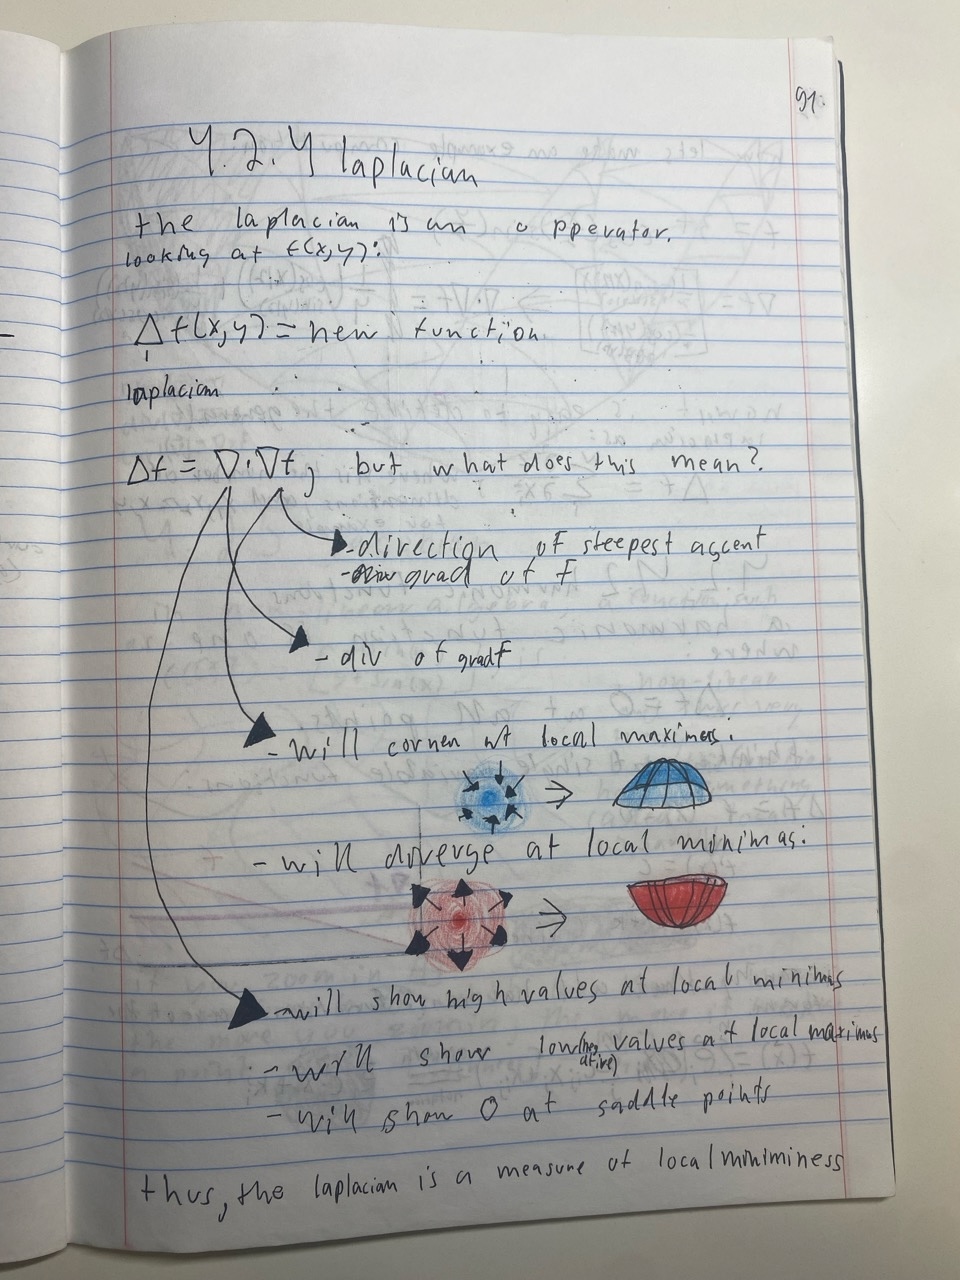 91.
4.2.4 laplacian
the laplacian is an opperator.
looking at f(x,y):
Δf(x,y) = new function
laplacian
Δf = ∇·∇f, but what does this mean?
-direction of steepest ascent
- grad of f
- div of gradf
- will at local maximas:
- will diverge at local minimas:
-will show high values at local minimas
- will show low(negative) values at local maximas
- will show 0 at saddle points
thus, the laplacian is a measure of local miniminess